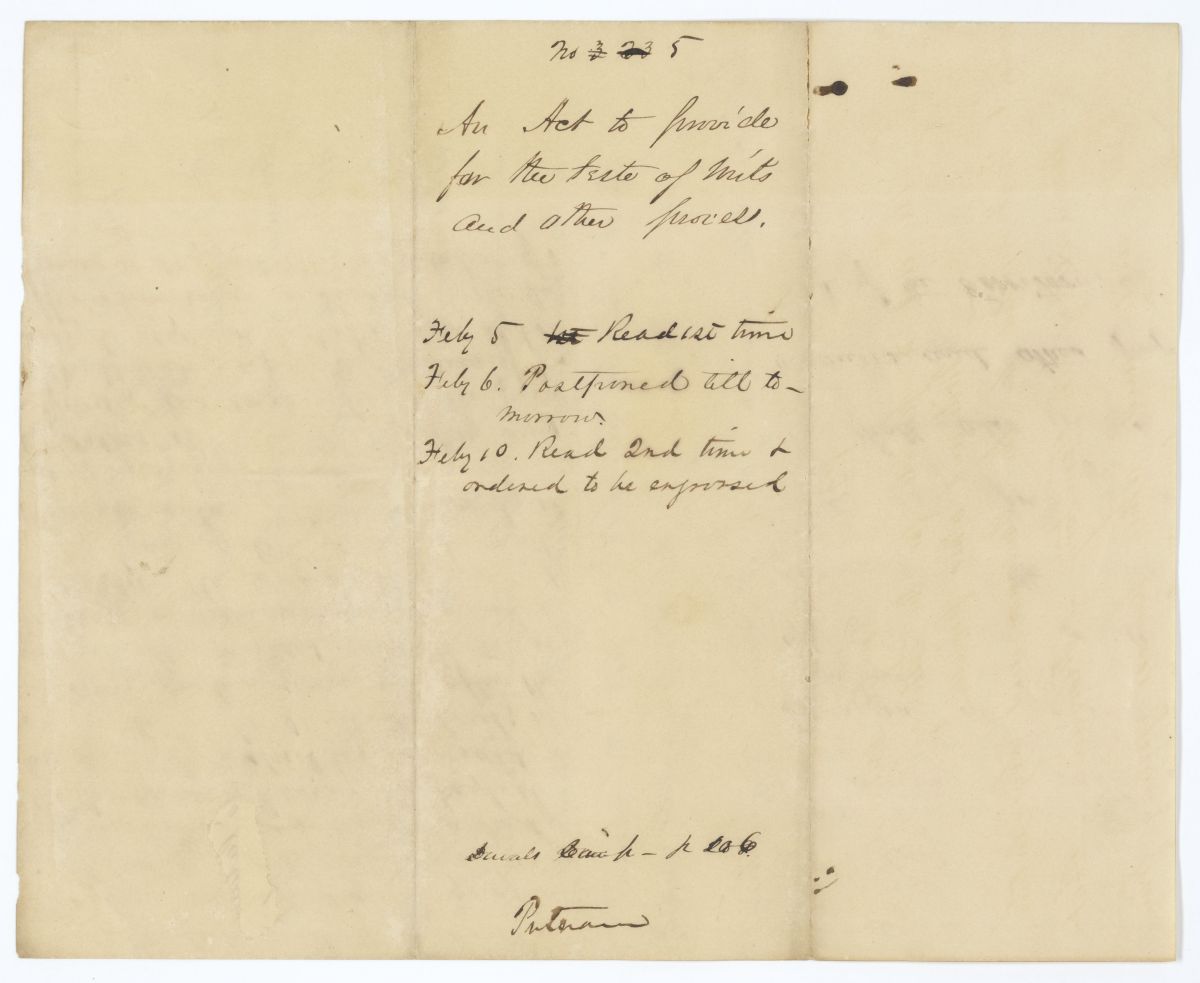 No 3 23 5
An Act to provide
for the teste of Writs
and other process.
Feby 5 1st Read 1st time
Feby 6. Postponed till to-
morrow.
Feby 10. Read 2nd time &
ordered to be engrossed
Duvals Comp - p 206
Putnam